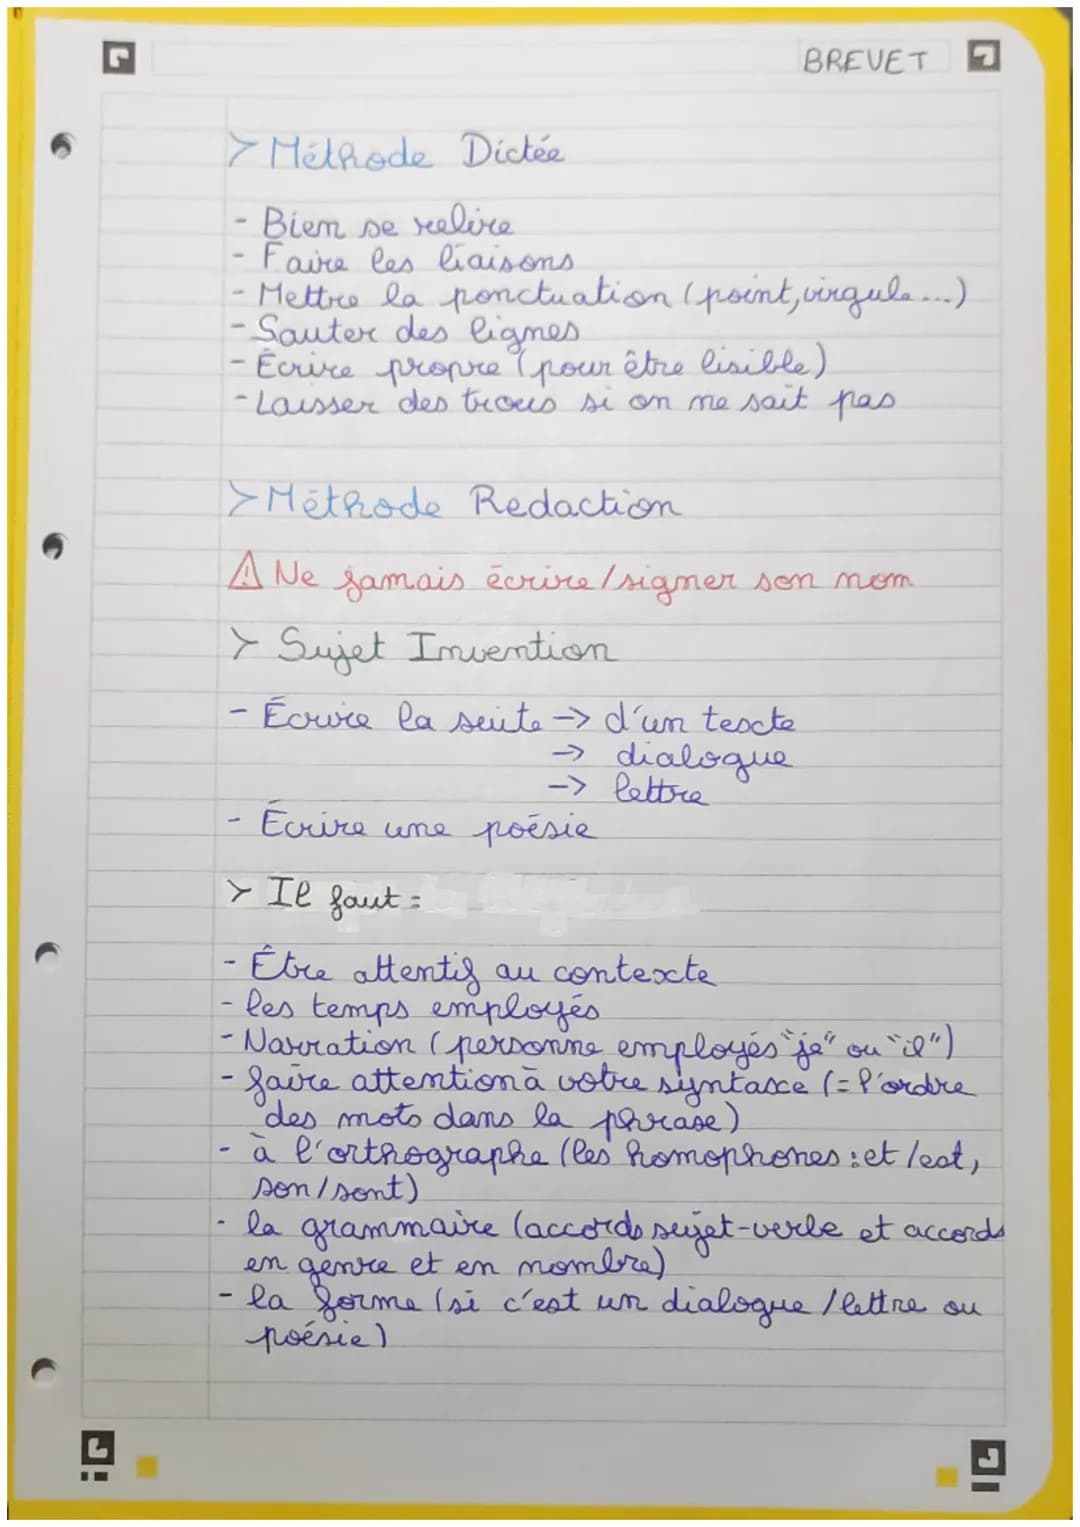 BREVET
> Méthode Dictée
- Bien se relire
- Faire les liaisons
- Mettre la ponctuation (point, virgule...)
- Sauter des lignes
- Écrire propre (pour être lisible)
- Laisser des trous si on ne sait pas
> Méthode Redaction
⚠ Ne jamais écrire/signer son nom
> Sujet Invention
- Écrire la suite -> d'un texte
-> dialogue
-> lettre
- Écrire une poésie
> Il faut =
- Être attentif au contexte
- les temps employés
- Narration (personne employés "je" ou "il")
- faire attention à votre syntaxe (= l'ordre
des mots dans la phrase)
- à l'orthographe (les homophones : et/est,
son/sont)
- la grammaire (accords sujet-verbe et accords
en genre et en nombre)
- la forme (si c'est un dialogue / lettre ou
poésie)